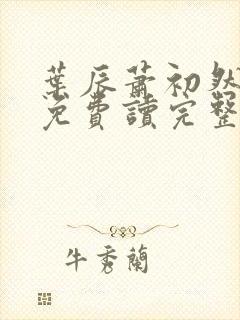 葉辰蕭初然
免費讀完整
牛秀蘭